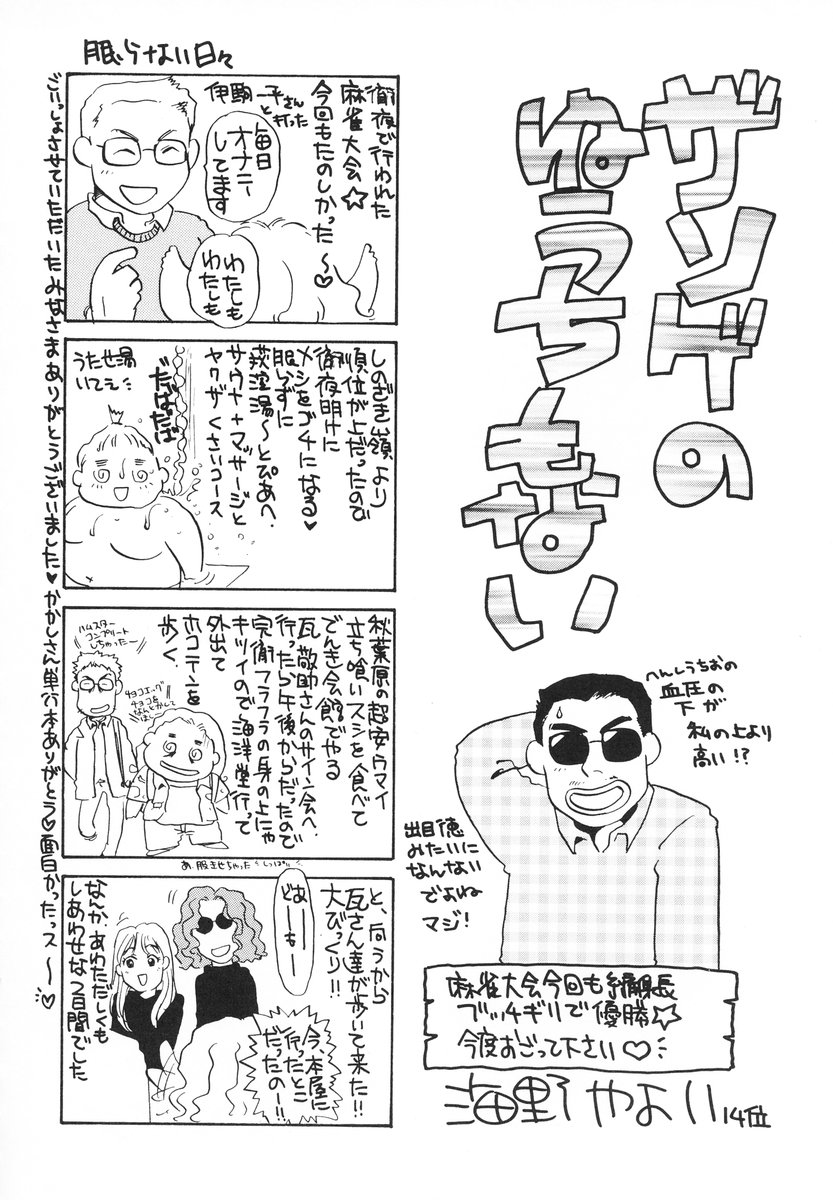 ザンゲの
ゆうちもない
へんしうちおの
血圧の
下が
私の上より
高い!?
出目徳
みたいに
なんない
でよね
マジ!
麻雀大会今回も編集長
ブッチギリで優勝☆
今度おごって下さい♡
海野やよい
14位
眠らない日々
徹夜で行われた
麻雀大会☆
今回もたのしかった〜♡
伊駒一平さん
と打った
毎日
オナニー
してます
わたしも
わたしも
しのざき嶺より
順位が上だったので
徹夜明けに
メシをゴチになる♥
眠らずに
荻窪湯〜とぴあへ。
サウナ+マッサージと
ヤクザくさいコース
だばだば
うたせ湯
いてえ
秋葉原の超安ウマイ
立ち喰いスシを食べて
でんき会館でやる
瓦敬助さんのサイン会へ。
行ったら午後からだったので
完徹フラフラの身の上にゃ
キツイので海洋堂行って
外出て
ホコテンを
歩く
ハムスター
コンプリート
しちゃったー
チョコエッグ
チョコを
なんとかして
あ、服きせちゃった
しっぱい
と、向うから
瓦さん達が歩いて来た!!
大びっくり!!
どおーーも
今、本屋に
行ったとこ
だったのー!!
なんか、あわただしくも
しあわせな2日間でした
ごいっしょさせていただいたみなさまありがとうございました♥かかしさん単行本ありがとう♡面白かったっス〜♡